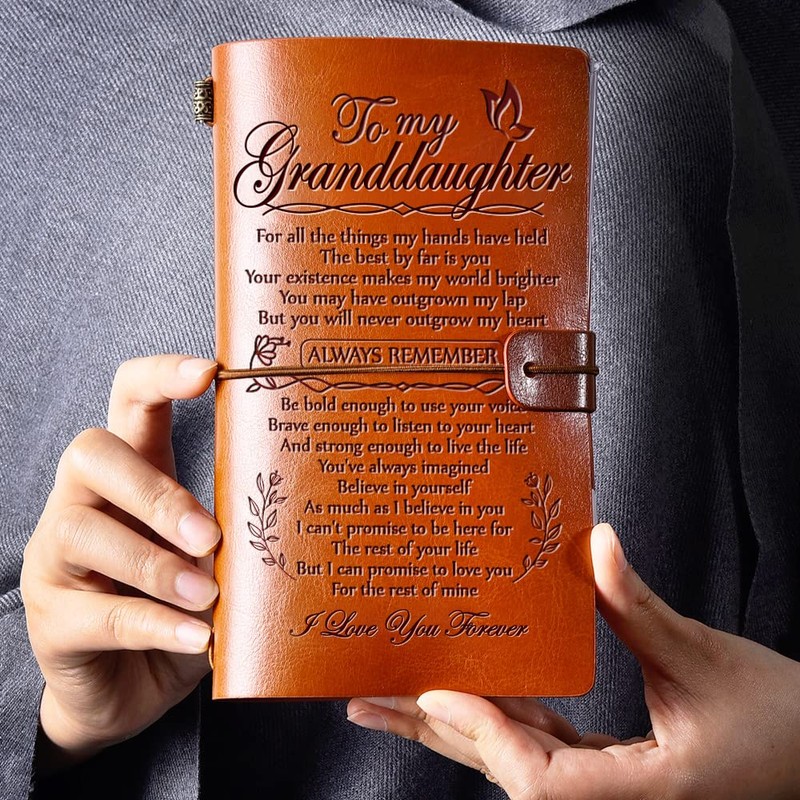 To my
Granddaughter
For all the things my hands have held
The best by far is you
Your existence makes my world brighter
You may have outgrown my lap
But you will never outgrow my heart
ALWAYS REMEMBER
Be bold enough to use your voice
Brave enough to listen to your heart
And strong enough to live the life
You've always imagined
Believe in yourself
As much as I believe in you
I can't promise to be here for
The rest of your life
But I can promise to love you
For the rest of mine
I Love You Forever